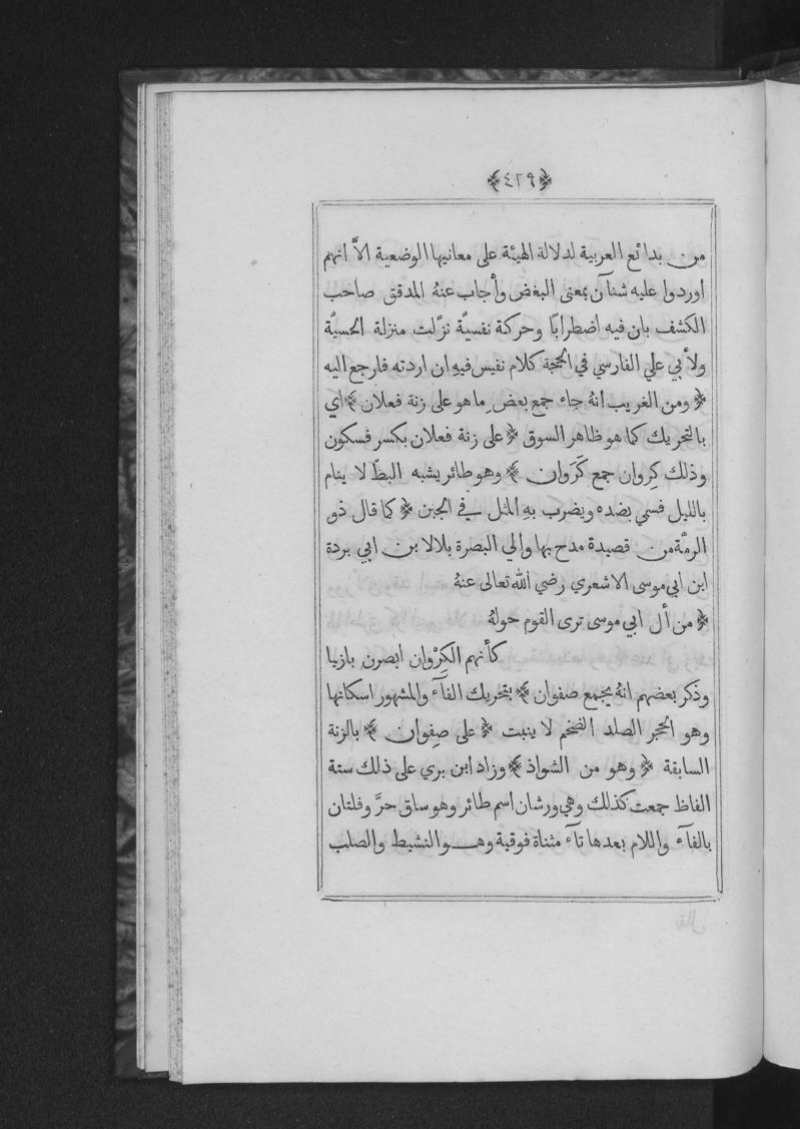 ﴿٤٢٩﴾
من بدائع العربية لدلالة الهيئة على معانيها الوضعية الاَّ انهم
اوردوا عليه شنآن بمعنى البغض وأجاب عنهُ المدقق صاحب
الكشف بان فيه اضطرابًا وحركة نفسيَّة نزّلت منزلة الحسيَّة
ولأبي علي الفارسي في الحجة كلام نفيس فيهِ ان اردته فارجع اليه
﴿ ومن الغريب انهُ جاء جمع بعض ما هو على زنة فعلان ﴾ اي
بالتحريك كما هو ظاهر السوق ﴿ على زنة فعلان بكسر فسكون
وذلك كِروان جمع كَرَوان ﴾ وهو طائر يشبه البطّ لا ينام
بالليل فسمي بضده ويضرب بهِ المثل في الجبن ﴿ كما قال ذو
الرمَّة من قصيدة مدح بها والي البصرة بلالا بن ابي بردة
ابن ابي موسى الاشعري رضي الله تعالى عنهُ
﴿ من أل ابي موسى ترى القوم حولهُ
كأنهم الكِرْوان ابصرن بازيا
وذكر بعضهم انهُ يجمع صفوان ﴾ بتحريك الفآء والمشهور اسكانها
وهو الحجر الصلد الضخم لا ينبت ﴿ على صِفوان ﴾ بالزنة
السابقة ﴿ وهو من الشواذ ﴾ وزاد ابن بري على ذلك ستة
الفاظ جمعت كذلك وهي ورشان اسم طائر وهو ساق حرَّ وفلتان
بالفآء واللام بعدها تآء مثناة فوقية وهــو النشيط والصلب